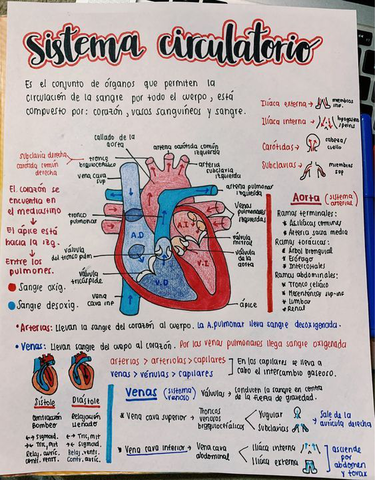 Sistema circulatorio
Es el conjunto de órganos que permiten la
circulación de la sangre por todo el cuerpo, está
compuesto por: corazón, vasos sanguíneos y sangre.
Ilíaca externa → miembros inf.
Ilíaca interna →
Carótidas → cabeza/cuello
Subclavias → miembros sup
callado de la
aorta
arteria carótida común
izquierda
subclavia derecha
carótida común
derecha
tronco
braquiocefálico
vena cava
sup
arteria
subclavia
izquierda
arteria pulmonar
izquierda
El corazón se
encuentra en
el mediastino
El ápice está
hacia la izq.
Entre los
pulmones.
tronco
pulmonar
venas
pulmonares
izquierdas
A.D
A.I
V.D
V.I
válvula
del tronco pulm
válvula
mitral
válvula
de la
aorta
válvula
tricúspide
vena
cava inf
ápice
Sangre oxig.
Sangre desoxig.
Aorta → (sistema arterial)
Ramas terminales:
Ilíacas comunes
Arteria sacra media
Ramas torácicas:
Árbol bronquial
Esófago
Intercostales
Ramas abdominales:
Tronco celíaco
Mesentérica sup-inf
Lumbar
Renal
• Arterias: Llevan la sangre del corazón al cuerpo. La A.pulmonar lleva sangre desoxigenada.
• Venas: Llevan sangre del cuerpo al corazón. Por las venas pulmonares llega sangre oxigenada
arterias > arteriolas > capilares
venas > vénulas > capilares
En los capilares se lleva a
cabo el intercambio gaseoso.
Sístole
Diástole
Contracción
Bombeo
Relajación
Llenado
Venas (sistema venoso)
Válvulas → Conducen la sangre en contra
de la fuerza de gravedad.
Vena cava superior > Troncos
venosos
braquiocefálicos
Yugular
Subclavias
Sale de la
aurícula derecha
Vena cava inferior > Vena cava
abdominal
Ilíaca interna
Ilíaca externa
asciende
por abdomen
y tórax